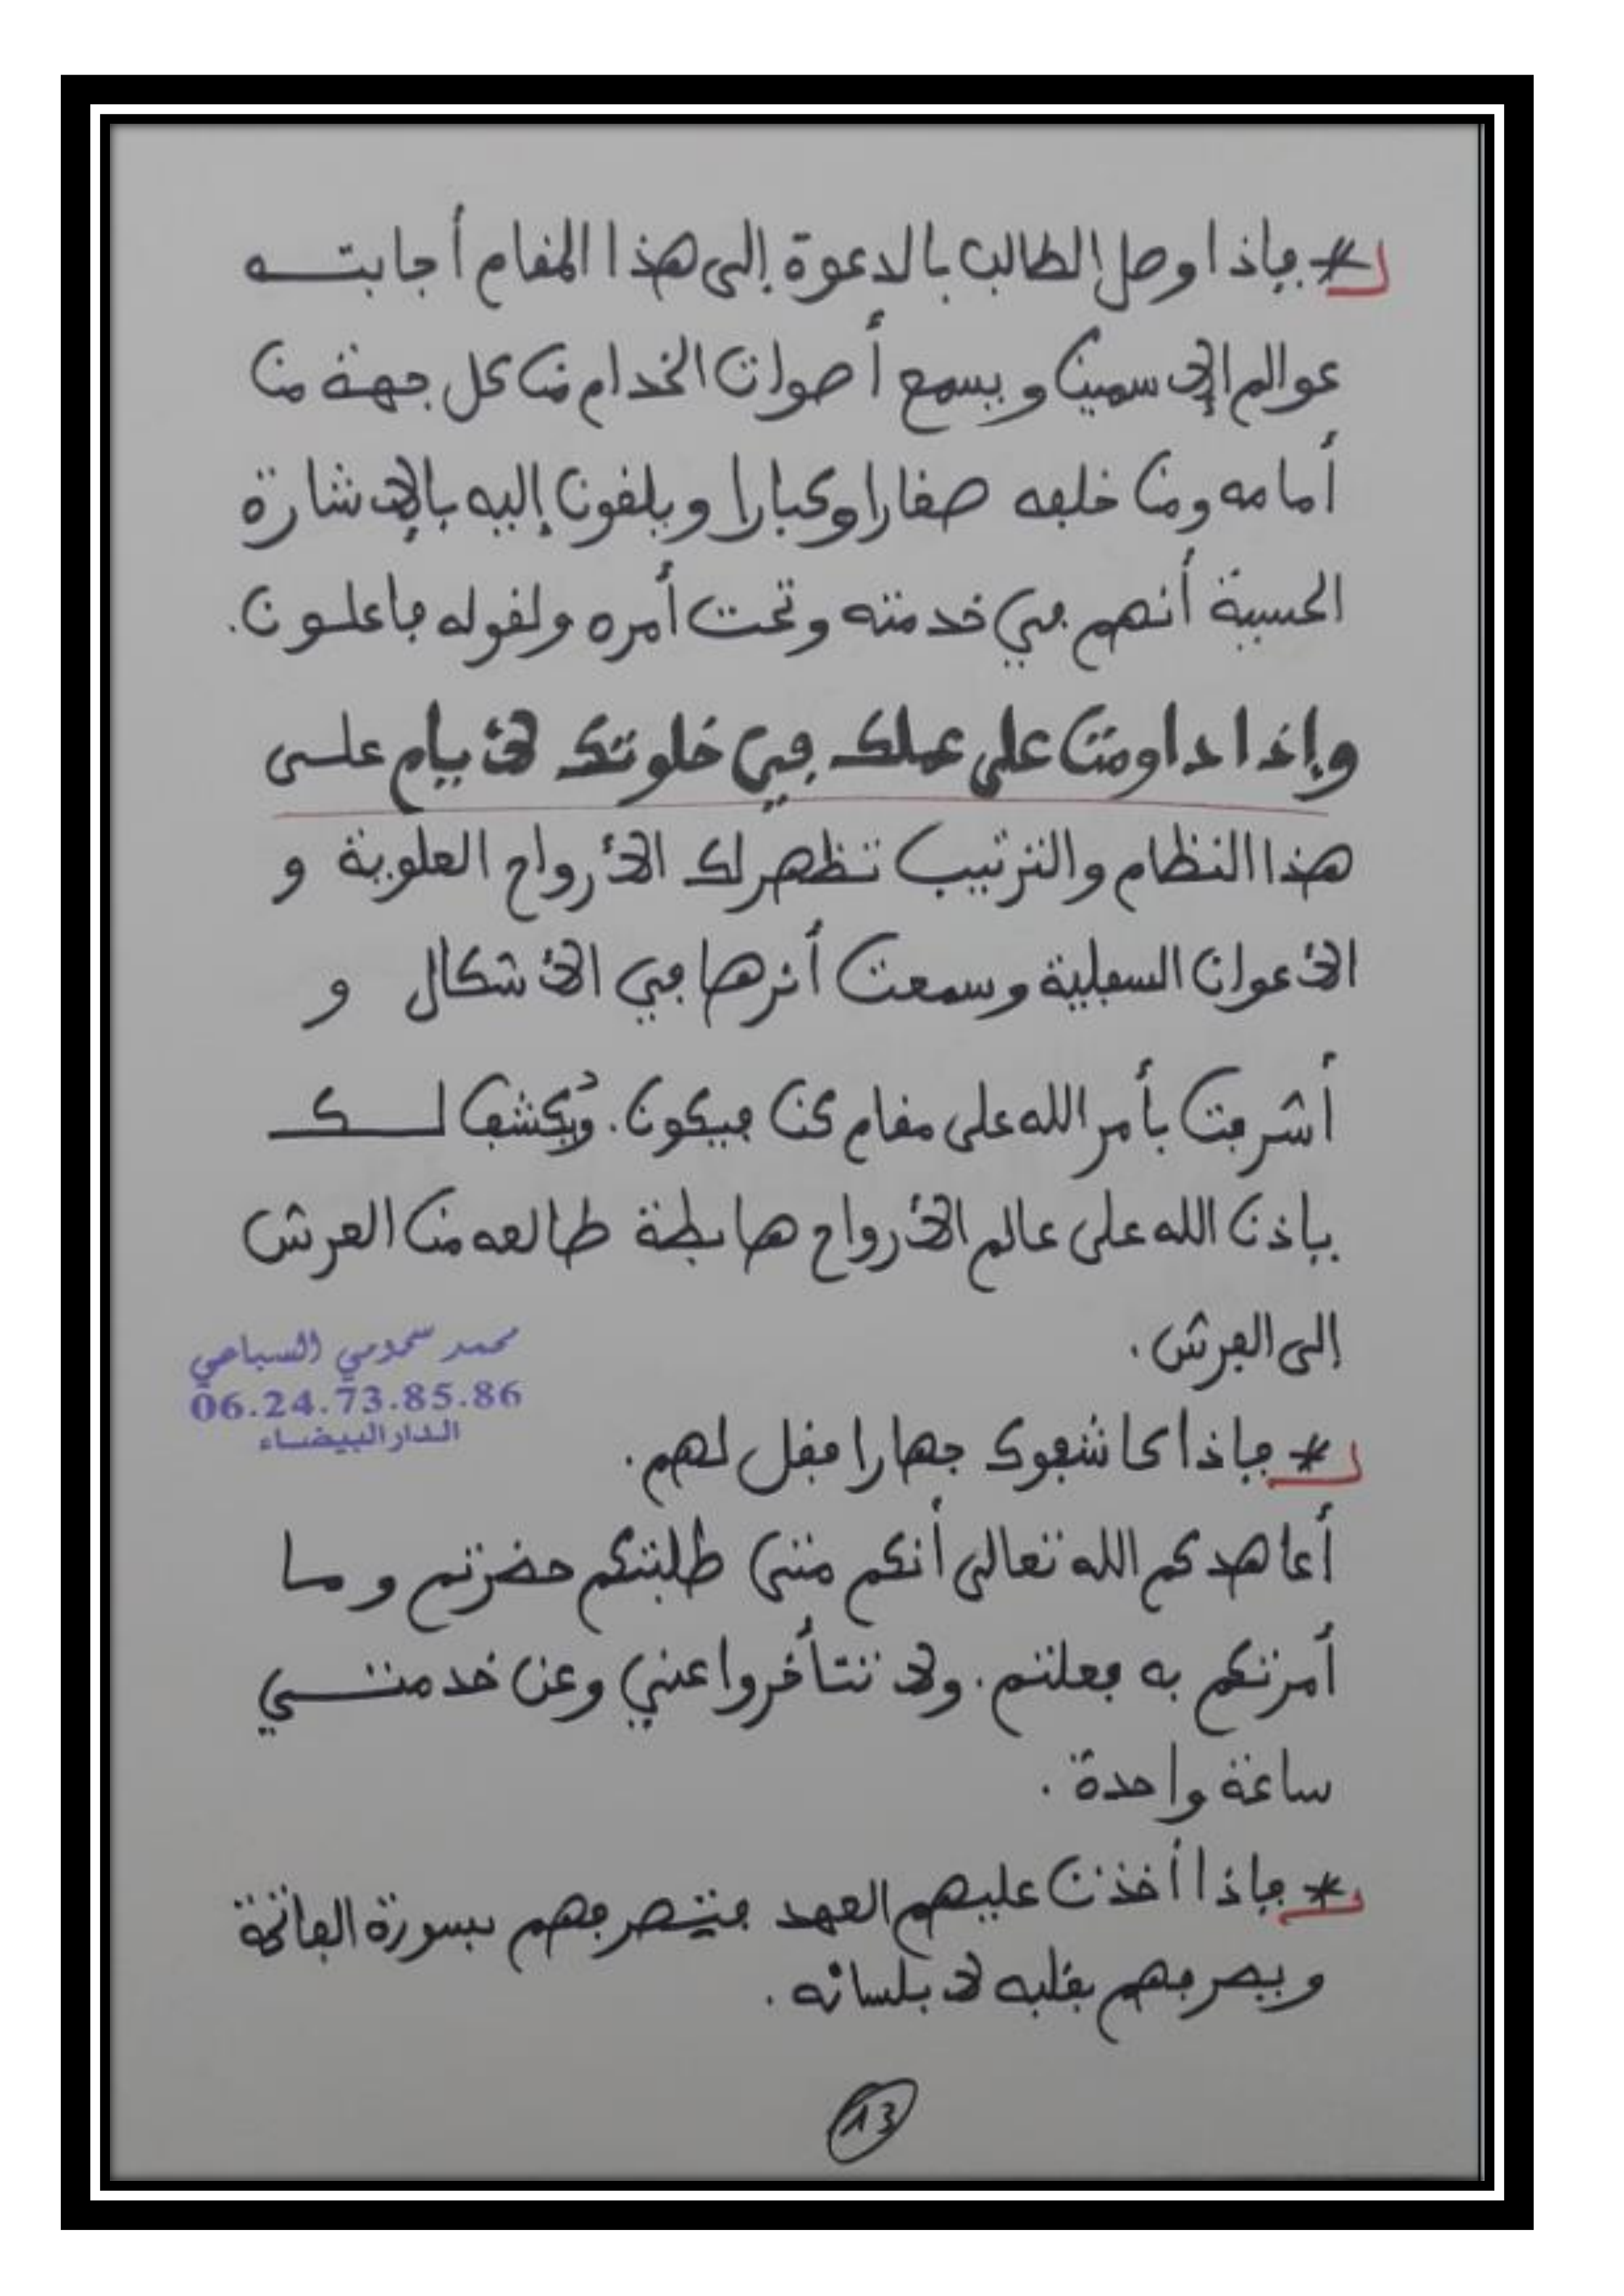 * فإذا وصل الطالب بالدعوة إلى هذا المقام أجابته
عوالم الإسمين ويسمع أصوات الخدام من كل جهة من
أمامه ومن خلفه صغارا وكبارا ويلقون إليه بالإشارة
الحسية أنهم في خدمته وتحت أمره ولقوله فاعلون.
وإذا داومت على عملك في خلوتك لأيام على
هذا النظام والترتيب تظهر لك الأرواح العلوية و
الأعوان السفلية وسمعت أثرها في الأشكال و
أشرفت بأمر الله على مقام كن فيكون. ويُكشف لك
بإذن الله على عالم الأرواح هابطة طالعه من العرش
إلى الفرش.
محمد سحومي السباعي
06.24.73.85.86
الدار البيضاء
* فإذا كاشفوك جهارا فقل لهم.
أعاهدكم الله تعالى أنكم متى طلبتكم حضرتم وما
أمرتكم به فعلتم. ولا تتأخروا عني وعن خدمتي
ساعة واحدة.
* فإذا أخذت عليهم العهد فتصرفهم بسورة الفاتحة
ويصرفهم بقلبه لا بلسانه.
13